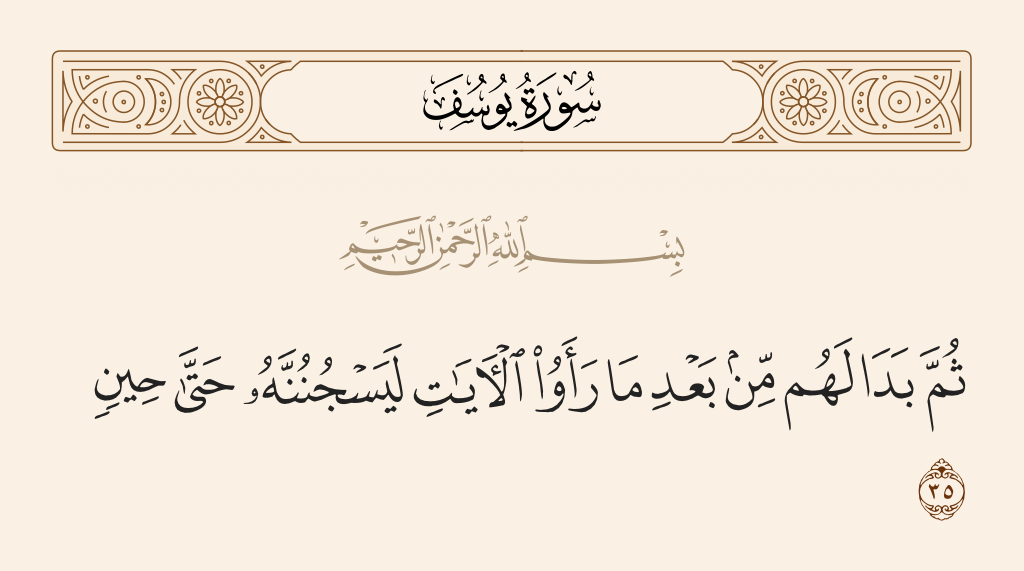 سُورَةُ يُوسُفَ
بِسْمِ ٱللَّهِ ٱلرَّحْمَٰنِ ٱلرَّحِيمِ
ثُمَّ بَدَا لَهُم مِّنۢ بَعْدِ مَا رَأَوُا۟ ٱلْـَٔايَـٰتِ لَيَسْجُنُنَّهُۥ حَتَّىٰ حِينٍ
٣٥